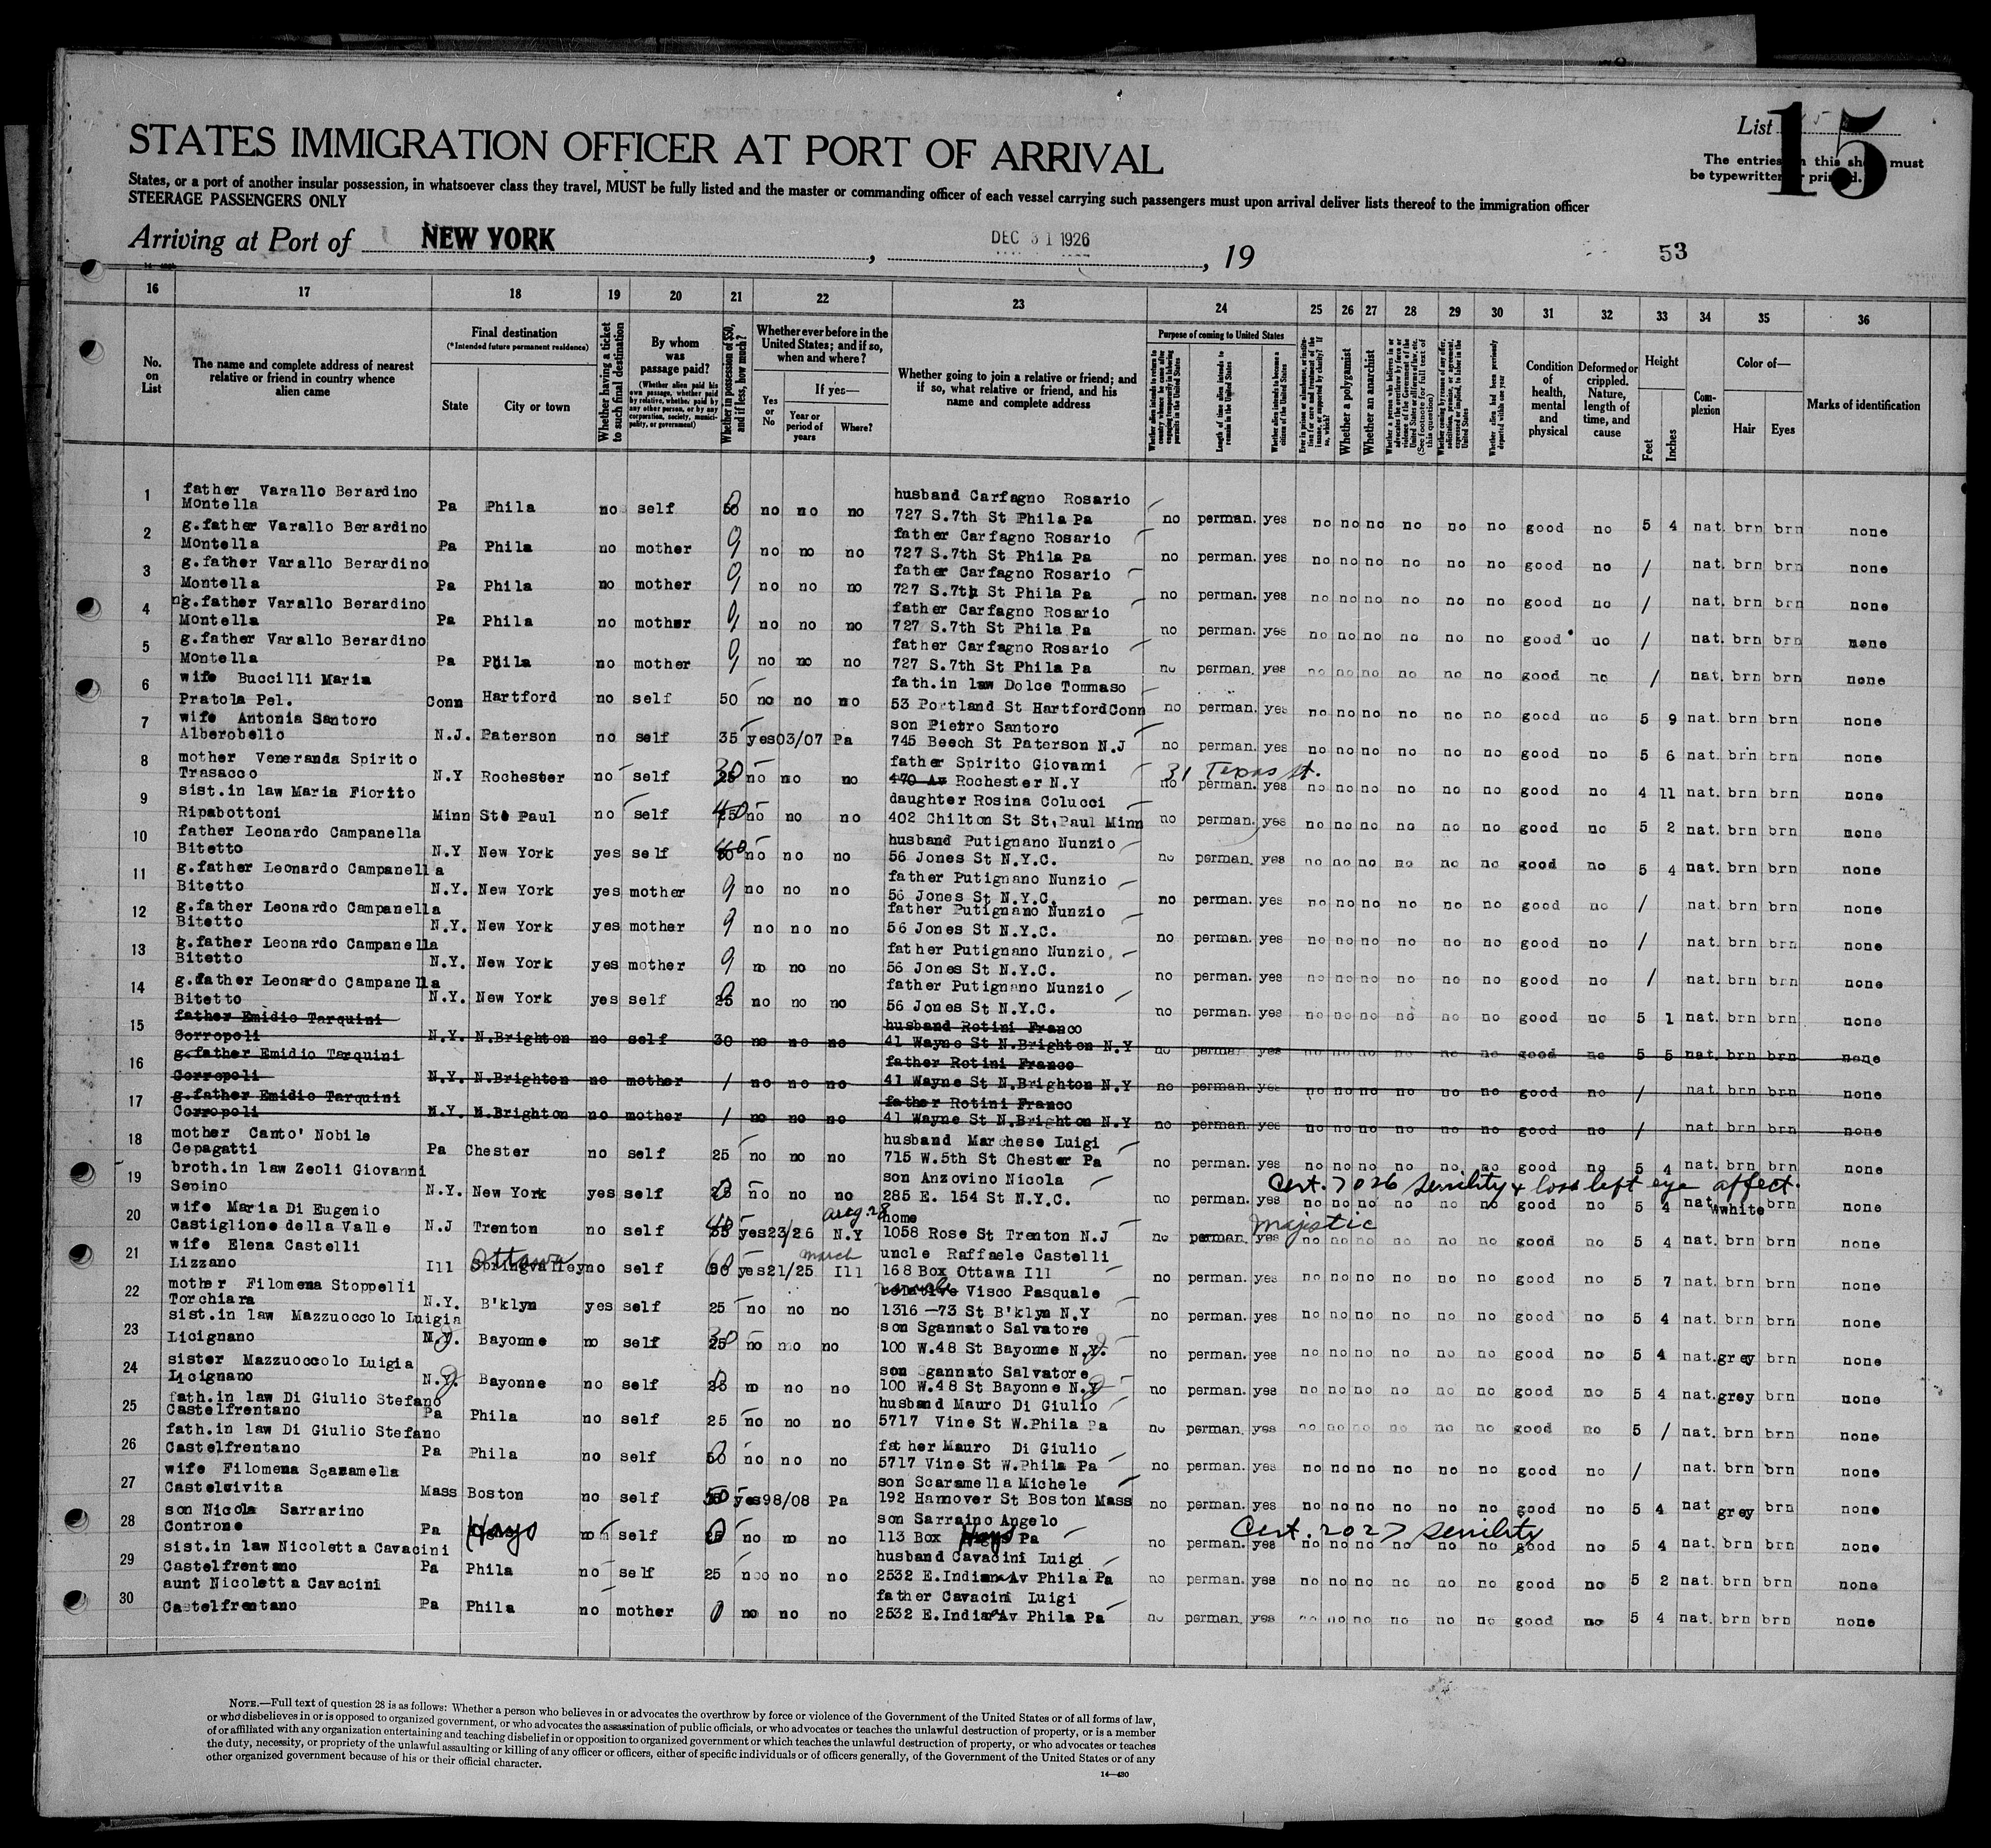 List 15
15
STATES IMMIGRATION OFFICER AT PORT OF ARRIVAL
The entries on this sheet must
be typewritten or printed.
States, or a port of another insular possession, in whatsoever class they travel, MUST be fully listed and the master or commanding officer of each vessel carrying such passengers must upon arrival deliver lists thereof to the immigration officer
STEERAGE PASSENGERS ONLY
Arriving at Port of NEW YORK , DEC 31 1926 , 19
53
16 17 18 19 20 21 22 23 24 25 26 27 28 29 30 31 32 33 34 35 36
No. on List
The name and complete address of nearest relative or friend in country whence alien came
Final destination
(*Intended future permanent residence)
State
City or town
Whether having a ticket to such final destination
By whom was passage paid?
(Whether alien paid his own passage, whether paid by relative, whether paid by any other person, or by any corporation, society, municipality, or government)
Whether in possession of $50, and if less, how much?
Whether ever before in the United States; and if so, when and where?
Yes or No
If yes—
Year or period of years
Where?
Whether going to join a relative or friend; and if so, what relative or friend, and his name and complete address
Purpose of coming to United States
Length of time alien intends to remain in the United States
Whether alien intends to become a citizen of the United States
Whether a polygamist
Whether an anarchist
Condition of health, mental and physical
Deformed or crippled. Nature, length of time, and cause
Height
Feet
Inches
Complexion
Color of—
Hair
Eyes
Marks of identification
1 father Varallo Berardino husband Carfagno Rosario
Montella Pa Phila no self no no no 727 S.7th St Phila Pa no perman. yes no no no no no no good no 5 4 nat. brn brn none
2 g.father Varallo Berardino father Carfagno Rosario
Montella Pa Phila no mother no no no 727 S.7th St Phila Pa no perman. yes no no no no no no good no / nat. brn brn none
3 g.father Varallo Berardino father Carfagno Rosario
Montella Pa Phila no mother no no no 727 S.7th St Phila Pa no perman. yes no no no no no no good no / nat. brn brn none
4 g.father Varallo Berardino father Carfagno Rosario
Montella Pa Phila no mother no no no 727 S.7th St Phila Pa no perman. yes no no no no no no good no / nat. brn brn none
5 g.father Varallo Berardino father Carfagno Rosario
Montella Pa Phila no mother no no no 727 S.7th St Phila Pa no perman. yes no no no no no no good no / nat. brn brn none
6 wife Buccilli Maria fath.in law Dolce Tommaso
Pratola Pel. Conn Hartford no self 50 no no no 53 Portland St HartfordConn no perman. yes no no no no no no good no 5 9 nat. brn brn none
7 wife Antonia Santoro son Pietro Santoro
Alberobello N.J. Paterson no self 35 yes 03/07 Pa 745 Beech St Paterson N.J no perman. yes no no no no no no good no 5 6 nat. brn brn none
8 mother Veneranda Spirito father Spirito Giovanni 31 Texas St.
Trasacco N.Y Rochester no self 30 no no no 470 Av Rochester N.Y no perman. yes no no no no no no good no 4 11 nat. brn brn none
9 sist.in law Maria Fiorito daughter Rosina Colucci
Ripabottoni Minn St. Paul no self 40 no no no 402 Chilton St St.Paul Minn no perman. yes no no no no no no good no 5 2 nat. brn brn none
10 father Leonardo Campanella husband Putignano Nunzio
Bitetto N.Y New York yes self 40 no no no 56 Jones St N.Y.C. no perman. yes no no no no no no good no 5 4 nat. brn brn none
11 g.father Leonardo Campanella father Putignano Nunzio
Bitetto N.Y. New York yes mother no no no 56 Jones St N.Y.C. no perman. yes no no no no no no good no / nat. brn brn none
12 g.father Leonardo Campanella father Putignano Nunzio
Bitetto N.Y. New York yes mother no no no 56 Jones St N.Y.C. no perman. yes no no no no no no good no / nat. brn brn none
13 g.father Leonardo Campanella father Putignano Nunzio
Bitetto N.Y. New York yes mother no no no 56 Jones St N.Y.C. no perman. yes no no no no no no good no / nat. brn brn none
14 g.father Leonardo Campanella father Putignano Nunzio
Bitetto N.Y. New York yes self 25 no no no 56 Jones St N.Y.C. no perman. yes no no no no no no good no 5 1 nat. brn brn none
15 father Emidio Tarquini husband Rotini Franco
Corropoli N.Y. N.Brighton no self 30 no no no 41 Wayne St N.Brighton N.Y no perman. yes no no no no no no good no 5 5 nat. brn brn none
16 g.father Emidio Tarquini father Rotini Franco
Corropoli N.Y. N.Brighton no mother / no no no 41 Wayne St N.Brighton N.Y no perman. yes no no no no no no good no / nat. brn brn none
17 g.father Emidio Tarquini father Rotini Franco
Corropoli N.Y. N.Brighton no mother / no no no 41 Wayne St N.Brighton N.Y no perman. yes no no no no no no good no / nat. brn brn none
18 mother Canto' Nobile husband Marchese Luigi
Cepagatti Pa Chester no self 25 no no no 715 W.5th St Chester Pa no perman. yes no no no no no no good no 5 4 nat. brn brn none
19 broth.in law Zeoli Giovanni son Anzovino Nicola Cert. 7026 senility & loss left eye affect.
Sepino N.Y. New York yes self no no no 285 E. 154 St N.Y.C. no perman. yes no no no no no no good no 5 4 nat white brn none
20 wife Maria Di Eugenio Aug. 28 home Majestic
Castiglione della Valle N.J Trenton no self yes 23/26 N.Y 1058 Rose St Trenton N.J no perman. yes no no no no no no good no 5 4 nat. brn brn none
21 wife Elena Castelli Ottawa March uncle Raffaele Castelli
Lizzano Ill Springvalley no self yes 21/25 Ill 168 Box Ottawa Ill no perman. yes no no no no no no good no 5 7 nat. brn brn none
22 mother Filomena Stoppelli Visco Pasquale
Torchiara N.Y. B'klyn yes self 25 no no no 1316 -73 St B'klyn N.Y no perman. yes no no no no no no good no 5 4 nat. brn brn none
23 sist.in law Mazzuoccolo Luigia son Sgannato Salvatore
Licignano N.J. Bayonne no self 30 no no no 100 W.48 St Bayonne N.J. no perman. yes no no no no no no good no 5 4 nat. grey brn none
24 sister Mazzuoccolo Luigia son Sgannato Salvatore
Licignano N.J. Bayonne no self no no no 100 W.48 St Bayonne N.J no perman. yes no no no no no no good no 5 4 nat. grey brn none
25 fath.in law Di Giulio Stefano husband Mauro Di Giulio
Castelfrentano Pa Phila no self 25 no no no 5717 Vine St W.Phila Pa no perman. yes no no no no no no good no 5 / nat. brn brn none
26 fath.in law Di Giulio Stefano father Mauro Di Giulio
Castelfrentano Pa Phila no self no no no 5717 Vine St W.Phila Pa no perman. yes no no no no no no good no / nat. brn brn none
27 wife Filomena Scaramella son Scaramella Michele
Castelcivita Mass Boston no self 50 yes 98/08 Pa 192 Hannover St Boston Mass no perman. yes no no no no no no good no 5 4 nat grey brn none
28 son Nicola Sarrarino son Sarraino Angelo Cert. 2027 senility
Controne Pa Hays no self no no no 113 Box Hays Pa no perman. yes no no no no no no good no 5 4 nat. brn brn none
29 sist.in law Nicoletta Cavacini husband Cavacini Luigi
Castelfrentano Pa Phila no self 25 no no no 2532 E.Indiana Av Phila Pa no perman. yes no no no no no no good no 5 2 nat. brn brn none
30 aunt Nicoletta Cavacini father Cavacini Luigi
Castelfrentano Pa Phila no mother 0 no no no 2532 E.Indiana Av Phila Pa no perman. yes no no no no no no good no 5 4 nat. brn brn none
NOTE.—Full text of question 28 is as follows: Whether a person who believes in or advocates the overthrow by force or violence of the Government of the United States or of all forms of law,
or who disbelieves in or is opposed to organized government, or who advocates the assassination of public officials, or who advocates or teaches the unlawful destruction of property, or is a member
of or affiliated with any organization entertaining and teaching disbelief in or opposition to organized government or which teaches the unlawful destruction of property, or who advocates or teaches
the duty, necessity, or propriety of the unlawful assaulting or killing of any officer or officers, either of specific individuals or of officers generally, of the Government of the United States or of any
other organized government because of his or their official character.
14—430